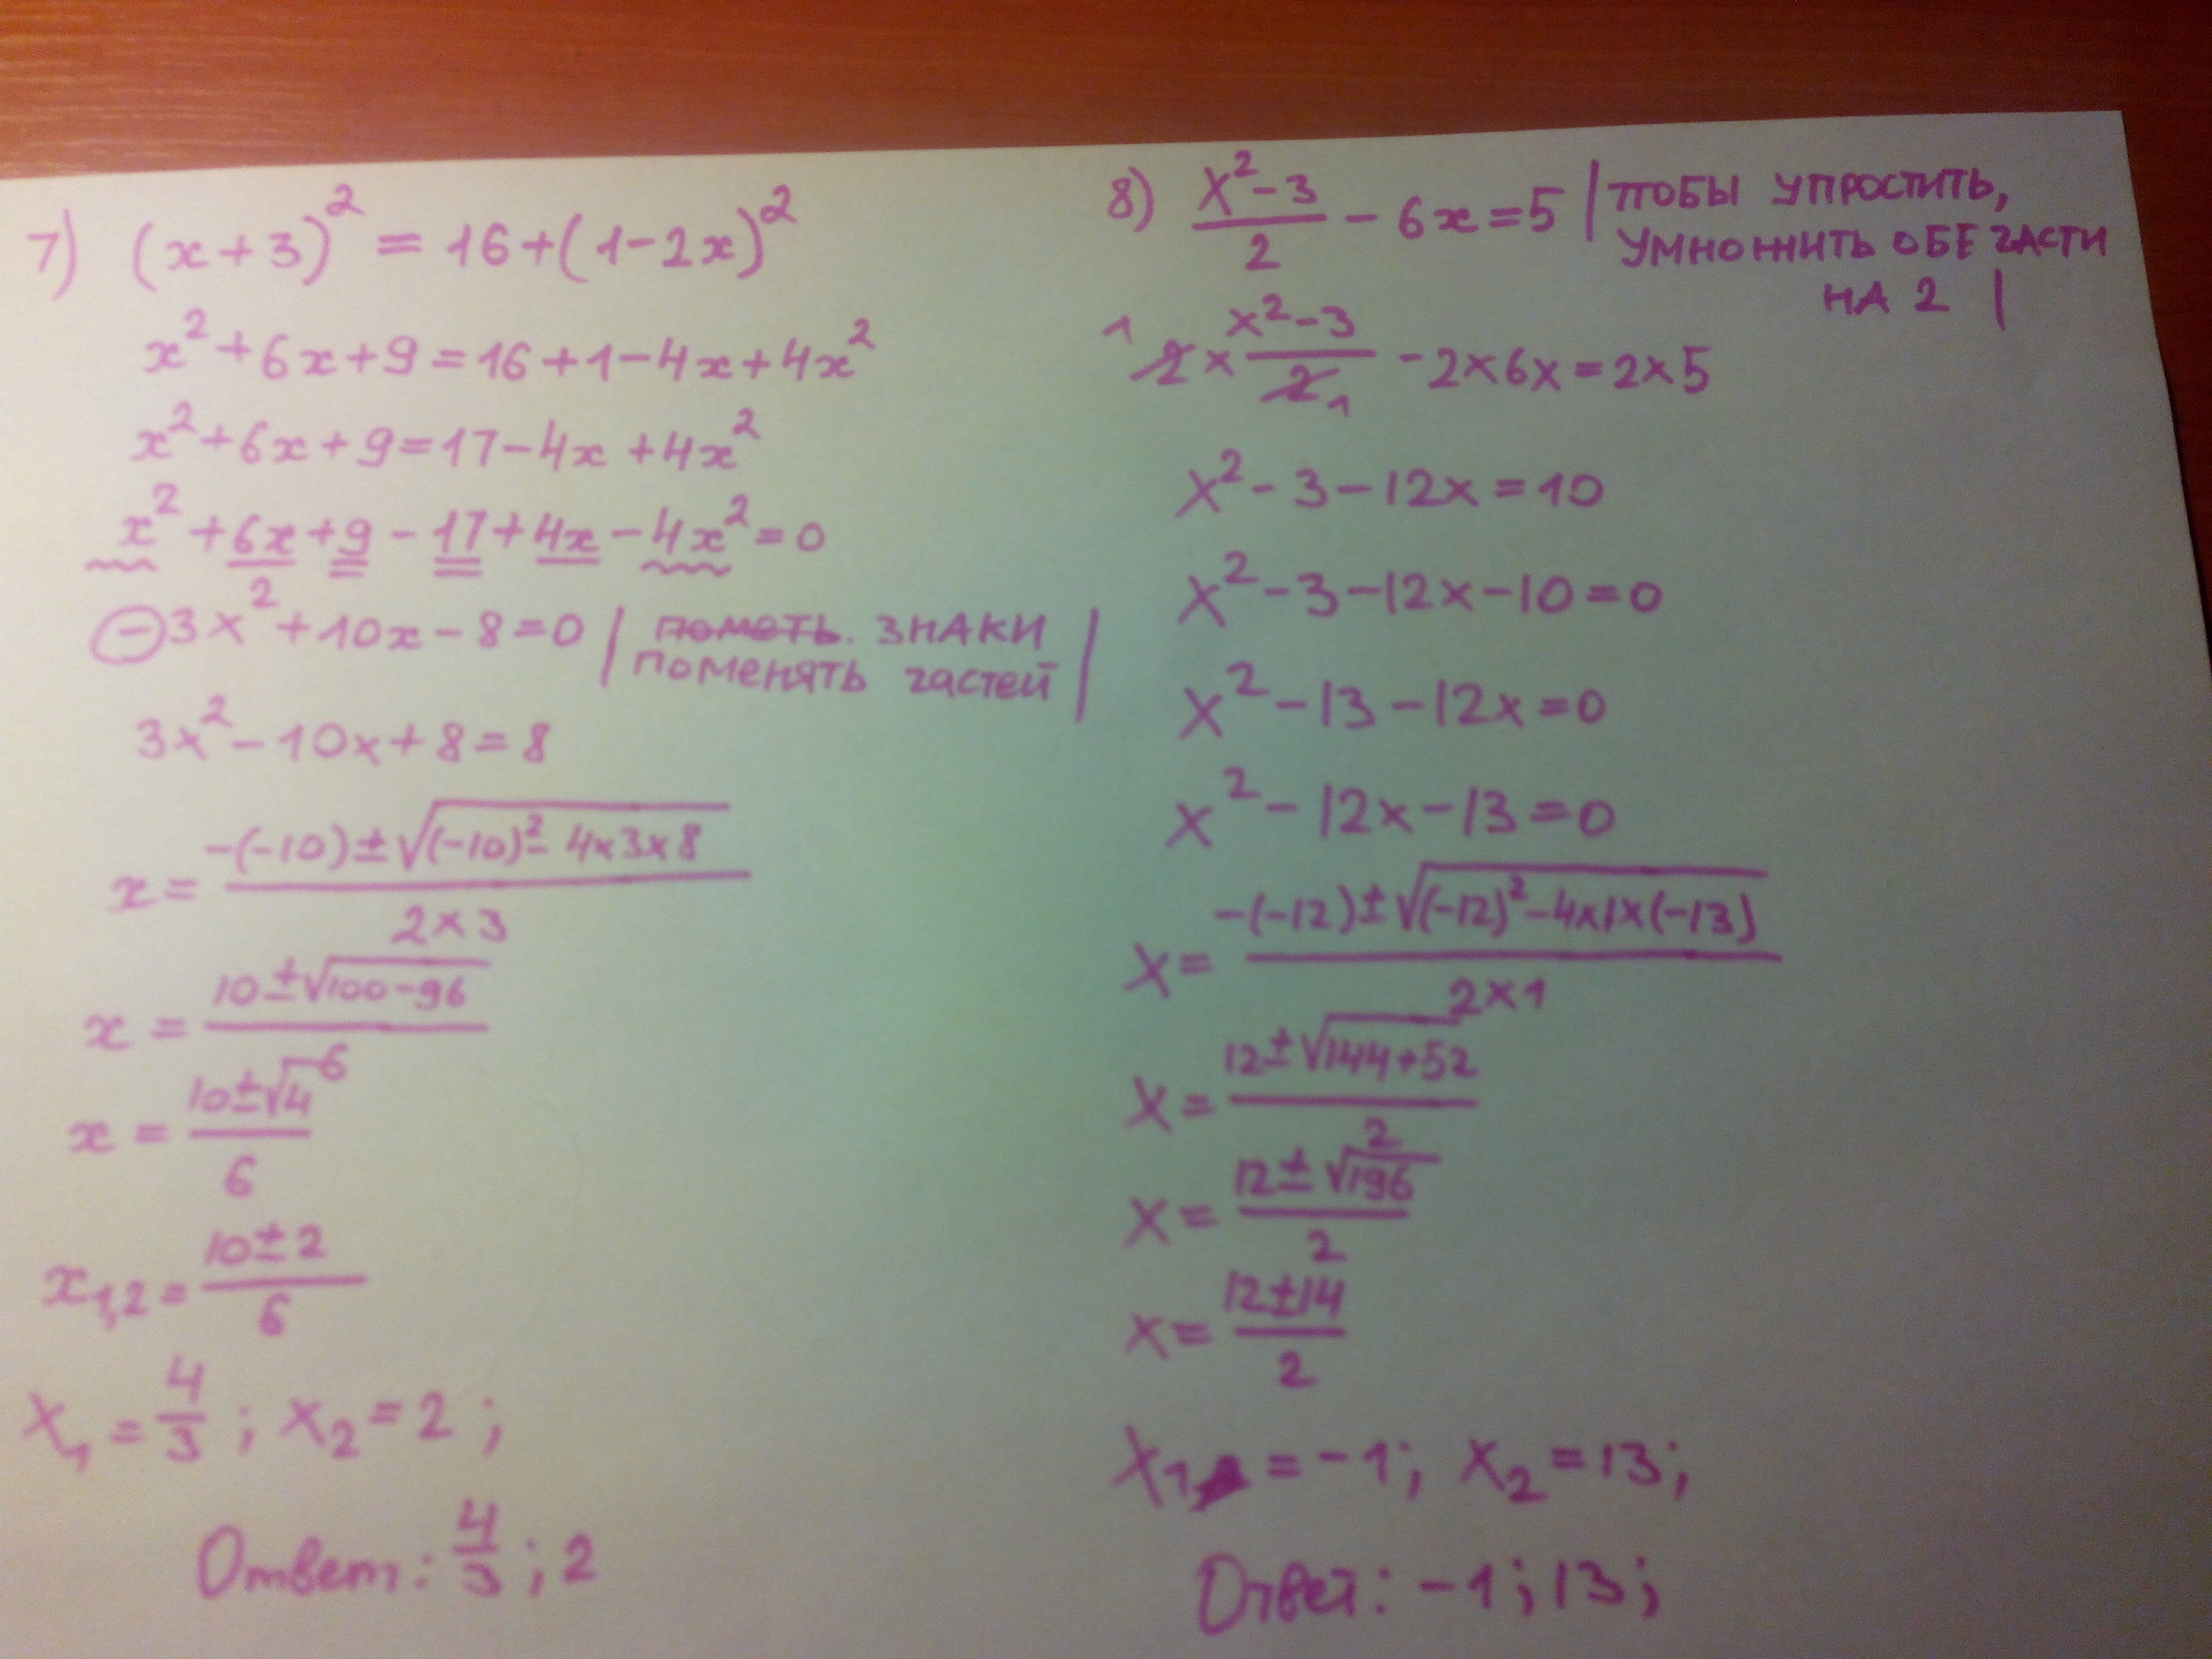 7) (x+3)² = 16+(1-2x)²
x²+6x+9=16+1-4x+4x²
x²+6x+9=17-4x+4x²
x²+6x+9-17+4x-4x²=0
-3x²+10x-8=0 | знаки
поменять частей |
3x²-10x+8=8
x= (-(-10)±√((-10)²-4x3x8))/(2x3)
x= (10±√(100-96))/6
x= (10±√4)/6
x1,2= (10±2)/6
x1=4/3; x2=2;
Ответ: 4/3; 2
8) (x²-3)/2 - 6x=5 | тобы упростить,
умножить обе части
на 2 |
1 2x (x²-3)/2 1 -2x6x=2x5
x²-3-12x=10
x²-3-12x-10=0
x²-13-12x=0
x²-12x-13=0
x= (-(-12)±√((-12)²-4x1x(-13)))/(2x1)
x= (12±√(144+52))/2
x= (12±√196)/2
x= (12±14)/2
x1=-1; x2=13;
Ответ: -1; 13;